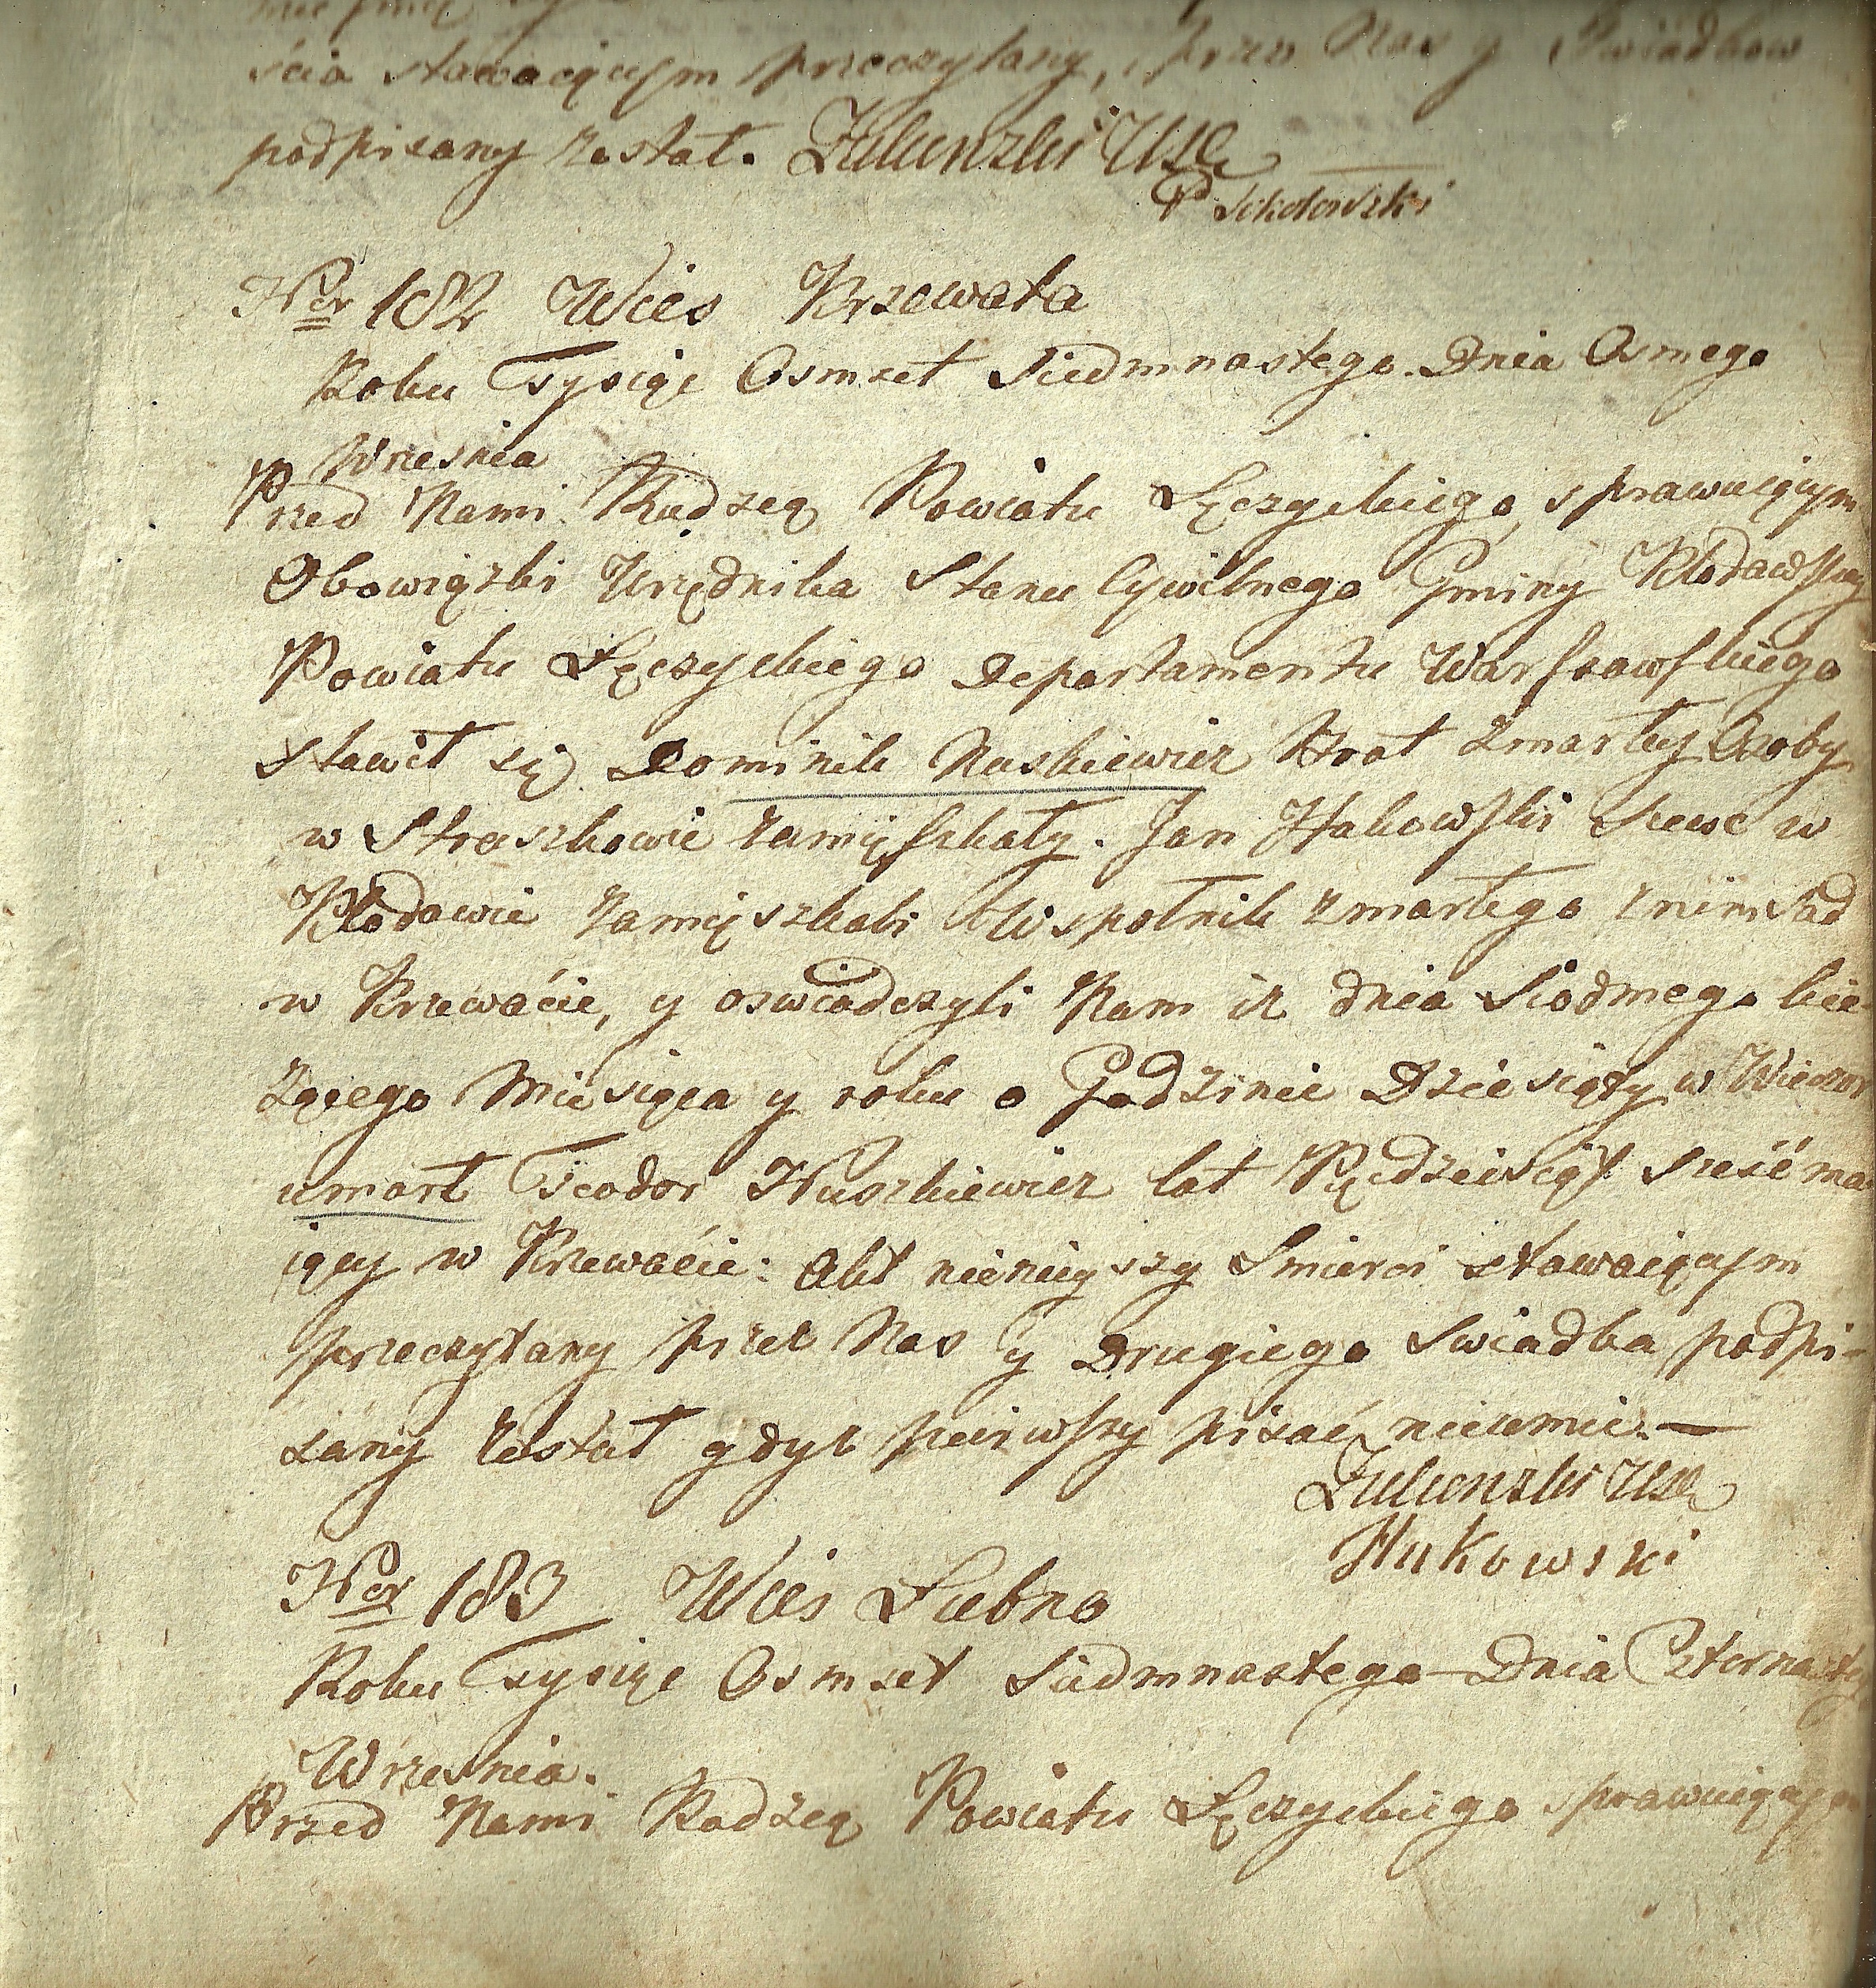 ścia stawaiącym przeczytany, przez Nas y Swiadkow
podpisany został. Zulunzki USC
P Sokołowski
Ner 182 Wies Krzewata
Roku Tysiąc Osmset Siedmnastego. Dnia Osmego
Wrzesnia
Przed Nami Radzcą Powiatu Łęczyckiego, sprawuiącym
Obowiązki Urzędnika Stanu Cywilnego Gminy Kłodawskiey
Powiatu Łęczyckiego Departamentu Warszawskiego
stawił się Dominik Nuskiewicz Brat Zmarłey Osoby
w Straszkowie zamięszkały. Jan Hukowski Szewc w
Kłodawie Zamięszkali Wspolnik zmarłego z nim Sad
w Krzewacie, y oswiadczyli Nam iz dnia Siodmego bie
żącego Miesiąca y roku o Godzinie Dziesiąty w Wieczor
umarł Teodor Nuszkiewicz lat Pięcdziesiąt sześć ma
iący w Krzewacie: Akt ninieyszy Smierci stawaiącym
przeczytany przez Nas y Drugiego Swiadka podpi-
sany został gdyz pierwszy pisać nieumie. —
Zulunzki USC
Hukowski
Ner 183 Wies Łubno
Roku Tysiąc Osmset Siedmnastego Dnia Czternastego
Wrzesnia.
Przed Nami Radzcą Powiatu Łęczyckiego sprawuiącym